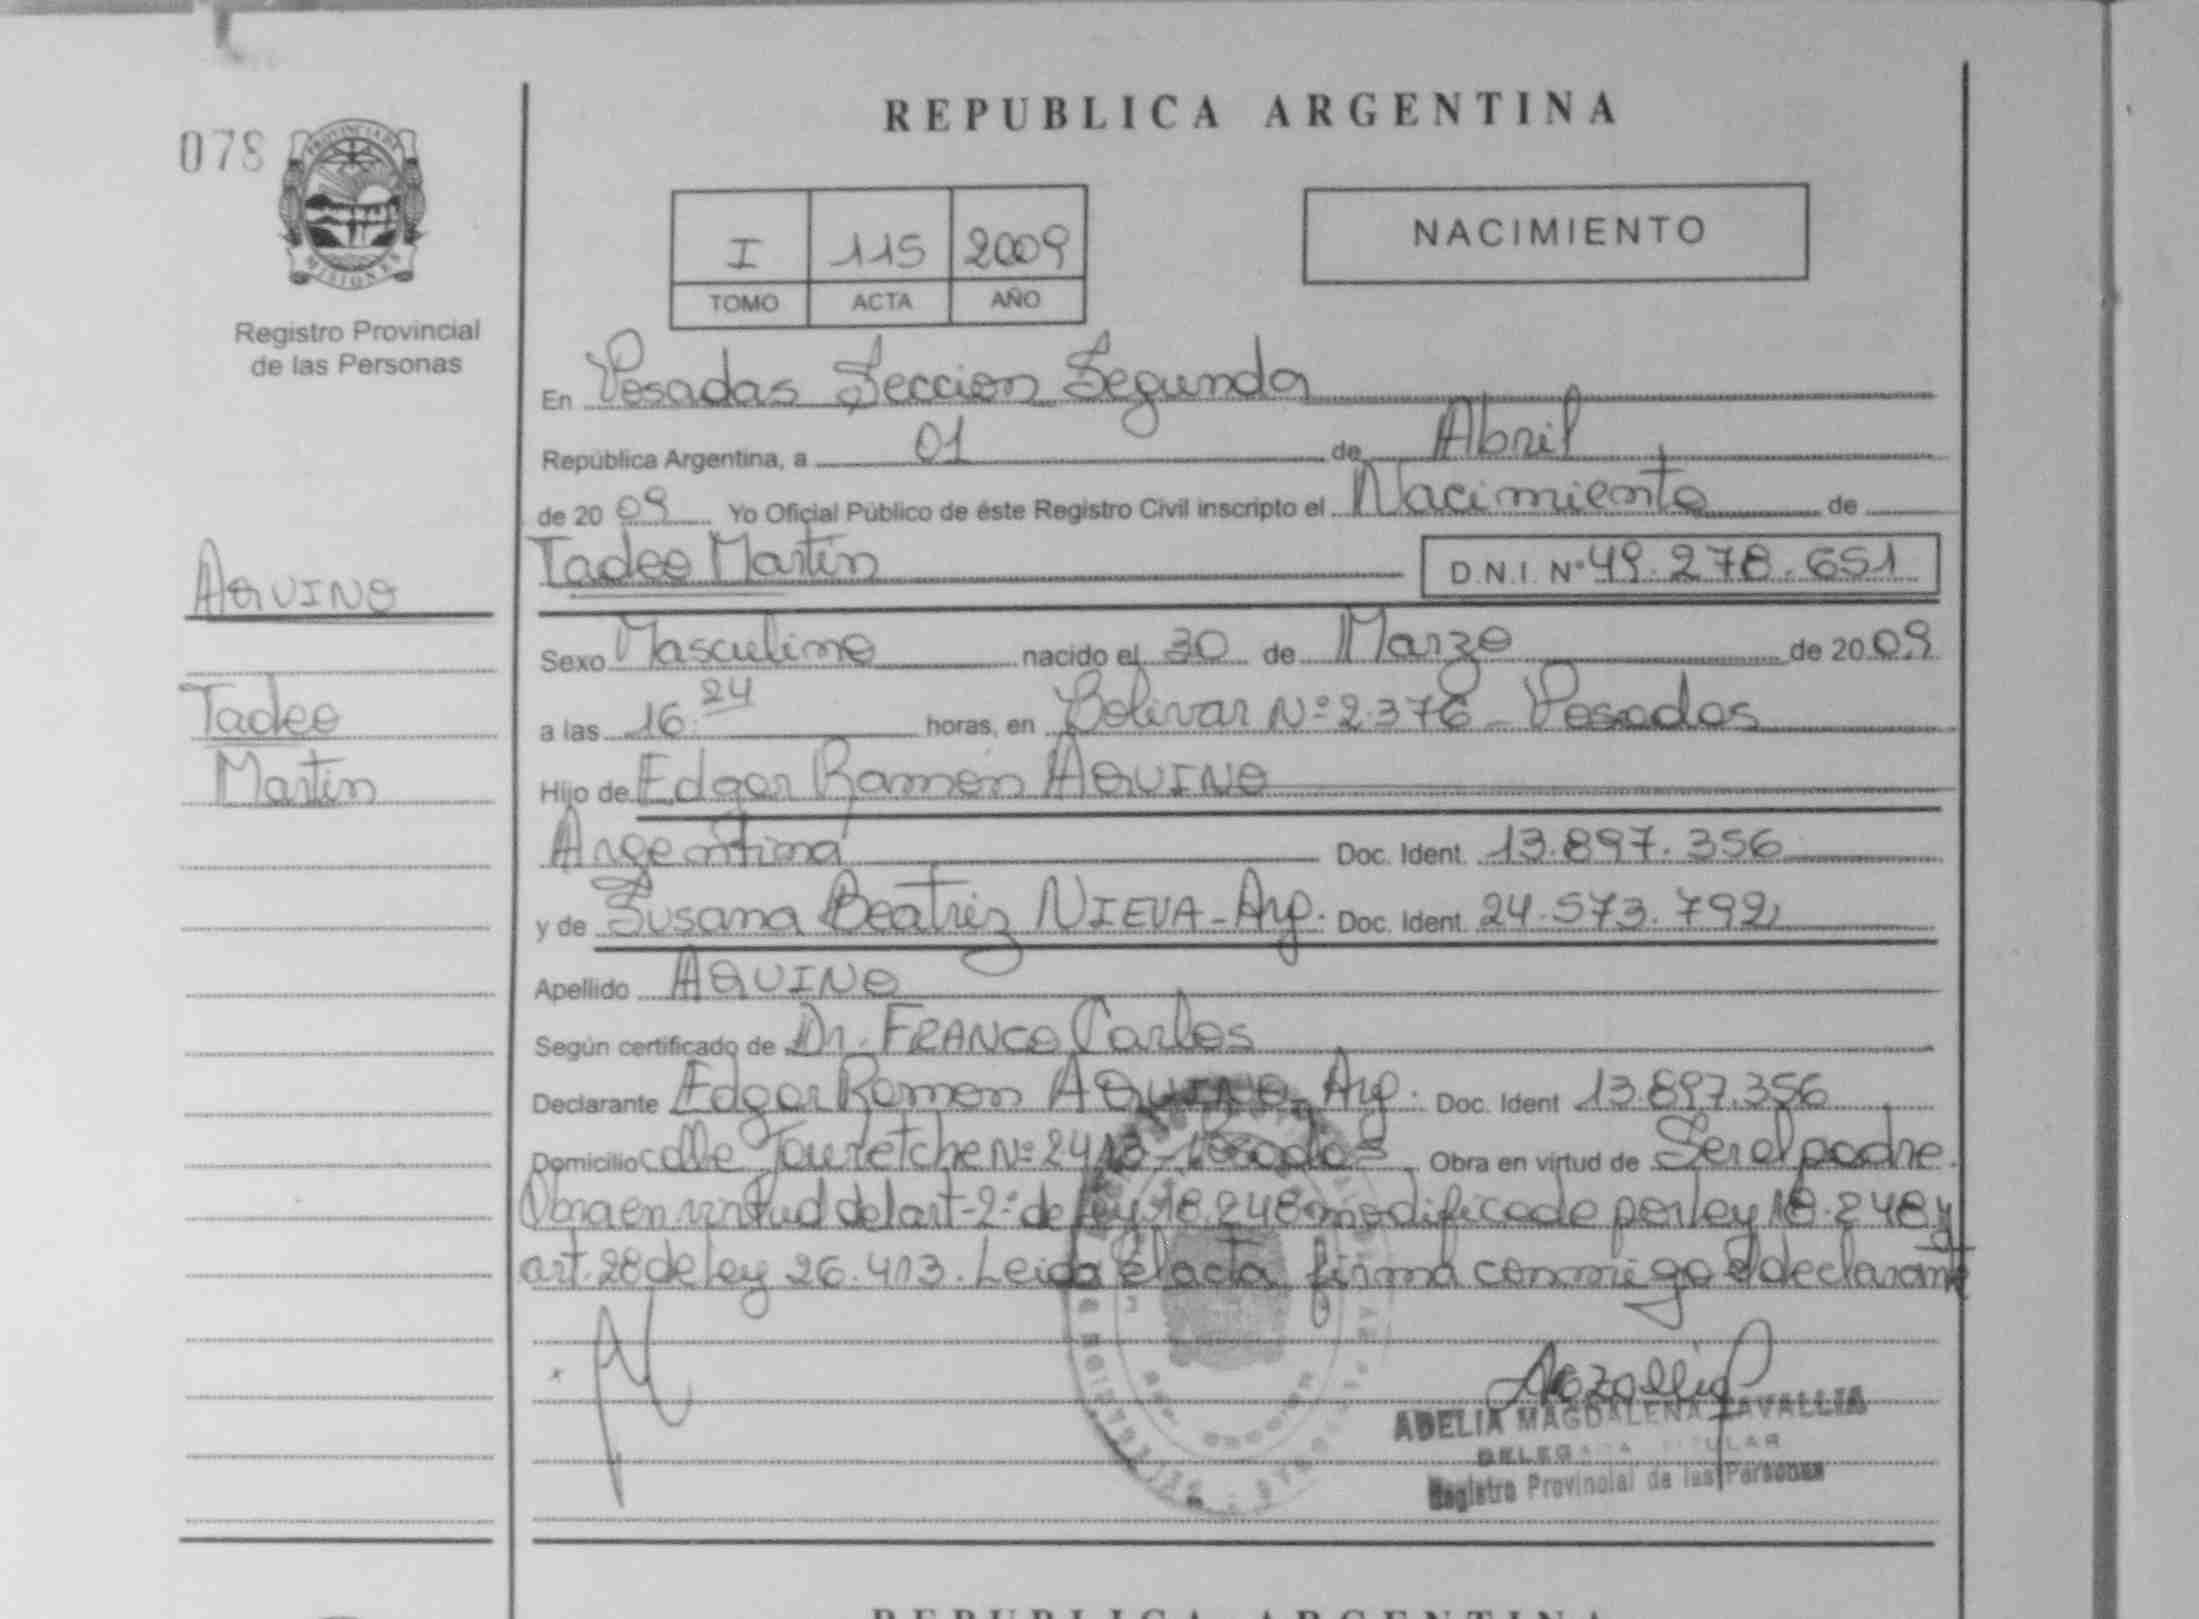 REPUBLICA ARGENTINA
078
PROVINCIA DE
MISIONES
Registro Provincial
de las Personas
I 115 2009
TOMO ACTA AÑO
NACIMIENTO
En Posadas Seccion Segunda
República Argentina, a 01 de Abril
de 20 09 Yo Oficial Público de éste Registro Civil inscripto el Nacimiento de
AQUINO
Tadeo Martin D.N.I. Nº 49.278.651
Sexo Masculino nacido el 30 de Marzo de 20 09
Tadeo
a las 16.24 horas, en Bolivar Nº 2.376 - Posadas
Martin
Hijo de Edgar Ramón AQUINO
Argentina Doc. Ident. 13.897.356
y de Susana Beatriz NIEVA - Arg. Doc. Ident. 24.573.792
Apellido AQUINO
Según certificado de Dr. FRANCO Carlos
Declarante Edgar Ramon AQUINO - Arg. Doc. Ident 13.897.356
Domicilio calle Nº Posadas Obra en virtud de Ser el padre.
Obra en virtud del art-2º de ley 18.248 modificado por ley 18.248 y
art. 28 de ley 26.413. Leida el acta firma conmigo el declarante
ADELIA MAGDALENA ZAVALLIA
DELEGADA TITULAR
Registro Provincial de las Personas
REPUBLICA ARGENTINA